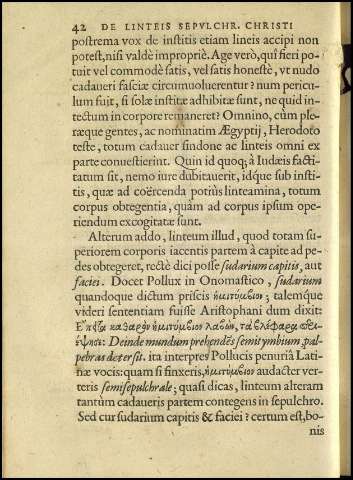 42 DE LINTEIS SEPVLCHR. CHRISTI
postrema vox de institis etiam lineis accipi non
potest, nisi valdè impropriè. Age verò, quî fieri po-
tuit vel commodè satis, vel satis honestè, vt nudo
cadaueri fasciæ circumuoluerentur? num pericu-
lum fuit, si solæ institæ adhibitæ sunt, ne quid in-
tectum in corpore remaneret? Omnino, cùm ple-
ræque gentes, ac nominatim Ægyptij, Herodoto
teste, totum cadauer sindone ac linteis omni ex
parte conuestierint. Quin id quoq; à Iudæis facti-
tatum sit, nemo iure dubitauerit, idque sub insti-
tis, quæ ad coërcenda potiùs linteamina, totum
corpus obtegentia, quàm ad corpus ipsum ope-
riendum excogitatæ sunt.
Alterum addo, linteum illud, quod totam su-
periorem corporis iacentis partem à capite ad pe-
des obtegeret, rectè dici posse sudarium capitis, aut
faciei. Docet Pollux in Onomastico, sudarium
quandoque dictum priscis ἡμιτύμβιον; talemque
videri sententiam fuisse Aristophani dum dixit:
καθαρὸν ἡμιτύμβιον λαβὼν, τὰ βλέφαρα
Deinde mundum prehendẽs semitymbium, pal-
pebras detersit. ita interpres Pollucis penuriâ Lati-
næ vocis: quam si finxeris, ἡμιτύμβιον audacter ver-
teris semisepulchrale; quasi dicas, linteum alteram
tantùm cadaueris partem contegens in sepulchro.
Sed cur sudarium capitis & faciei? certum est, bo-
nis